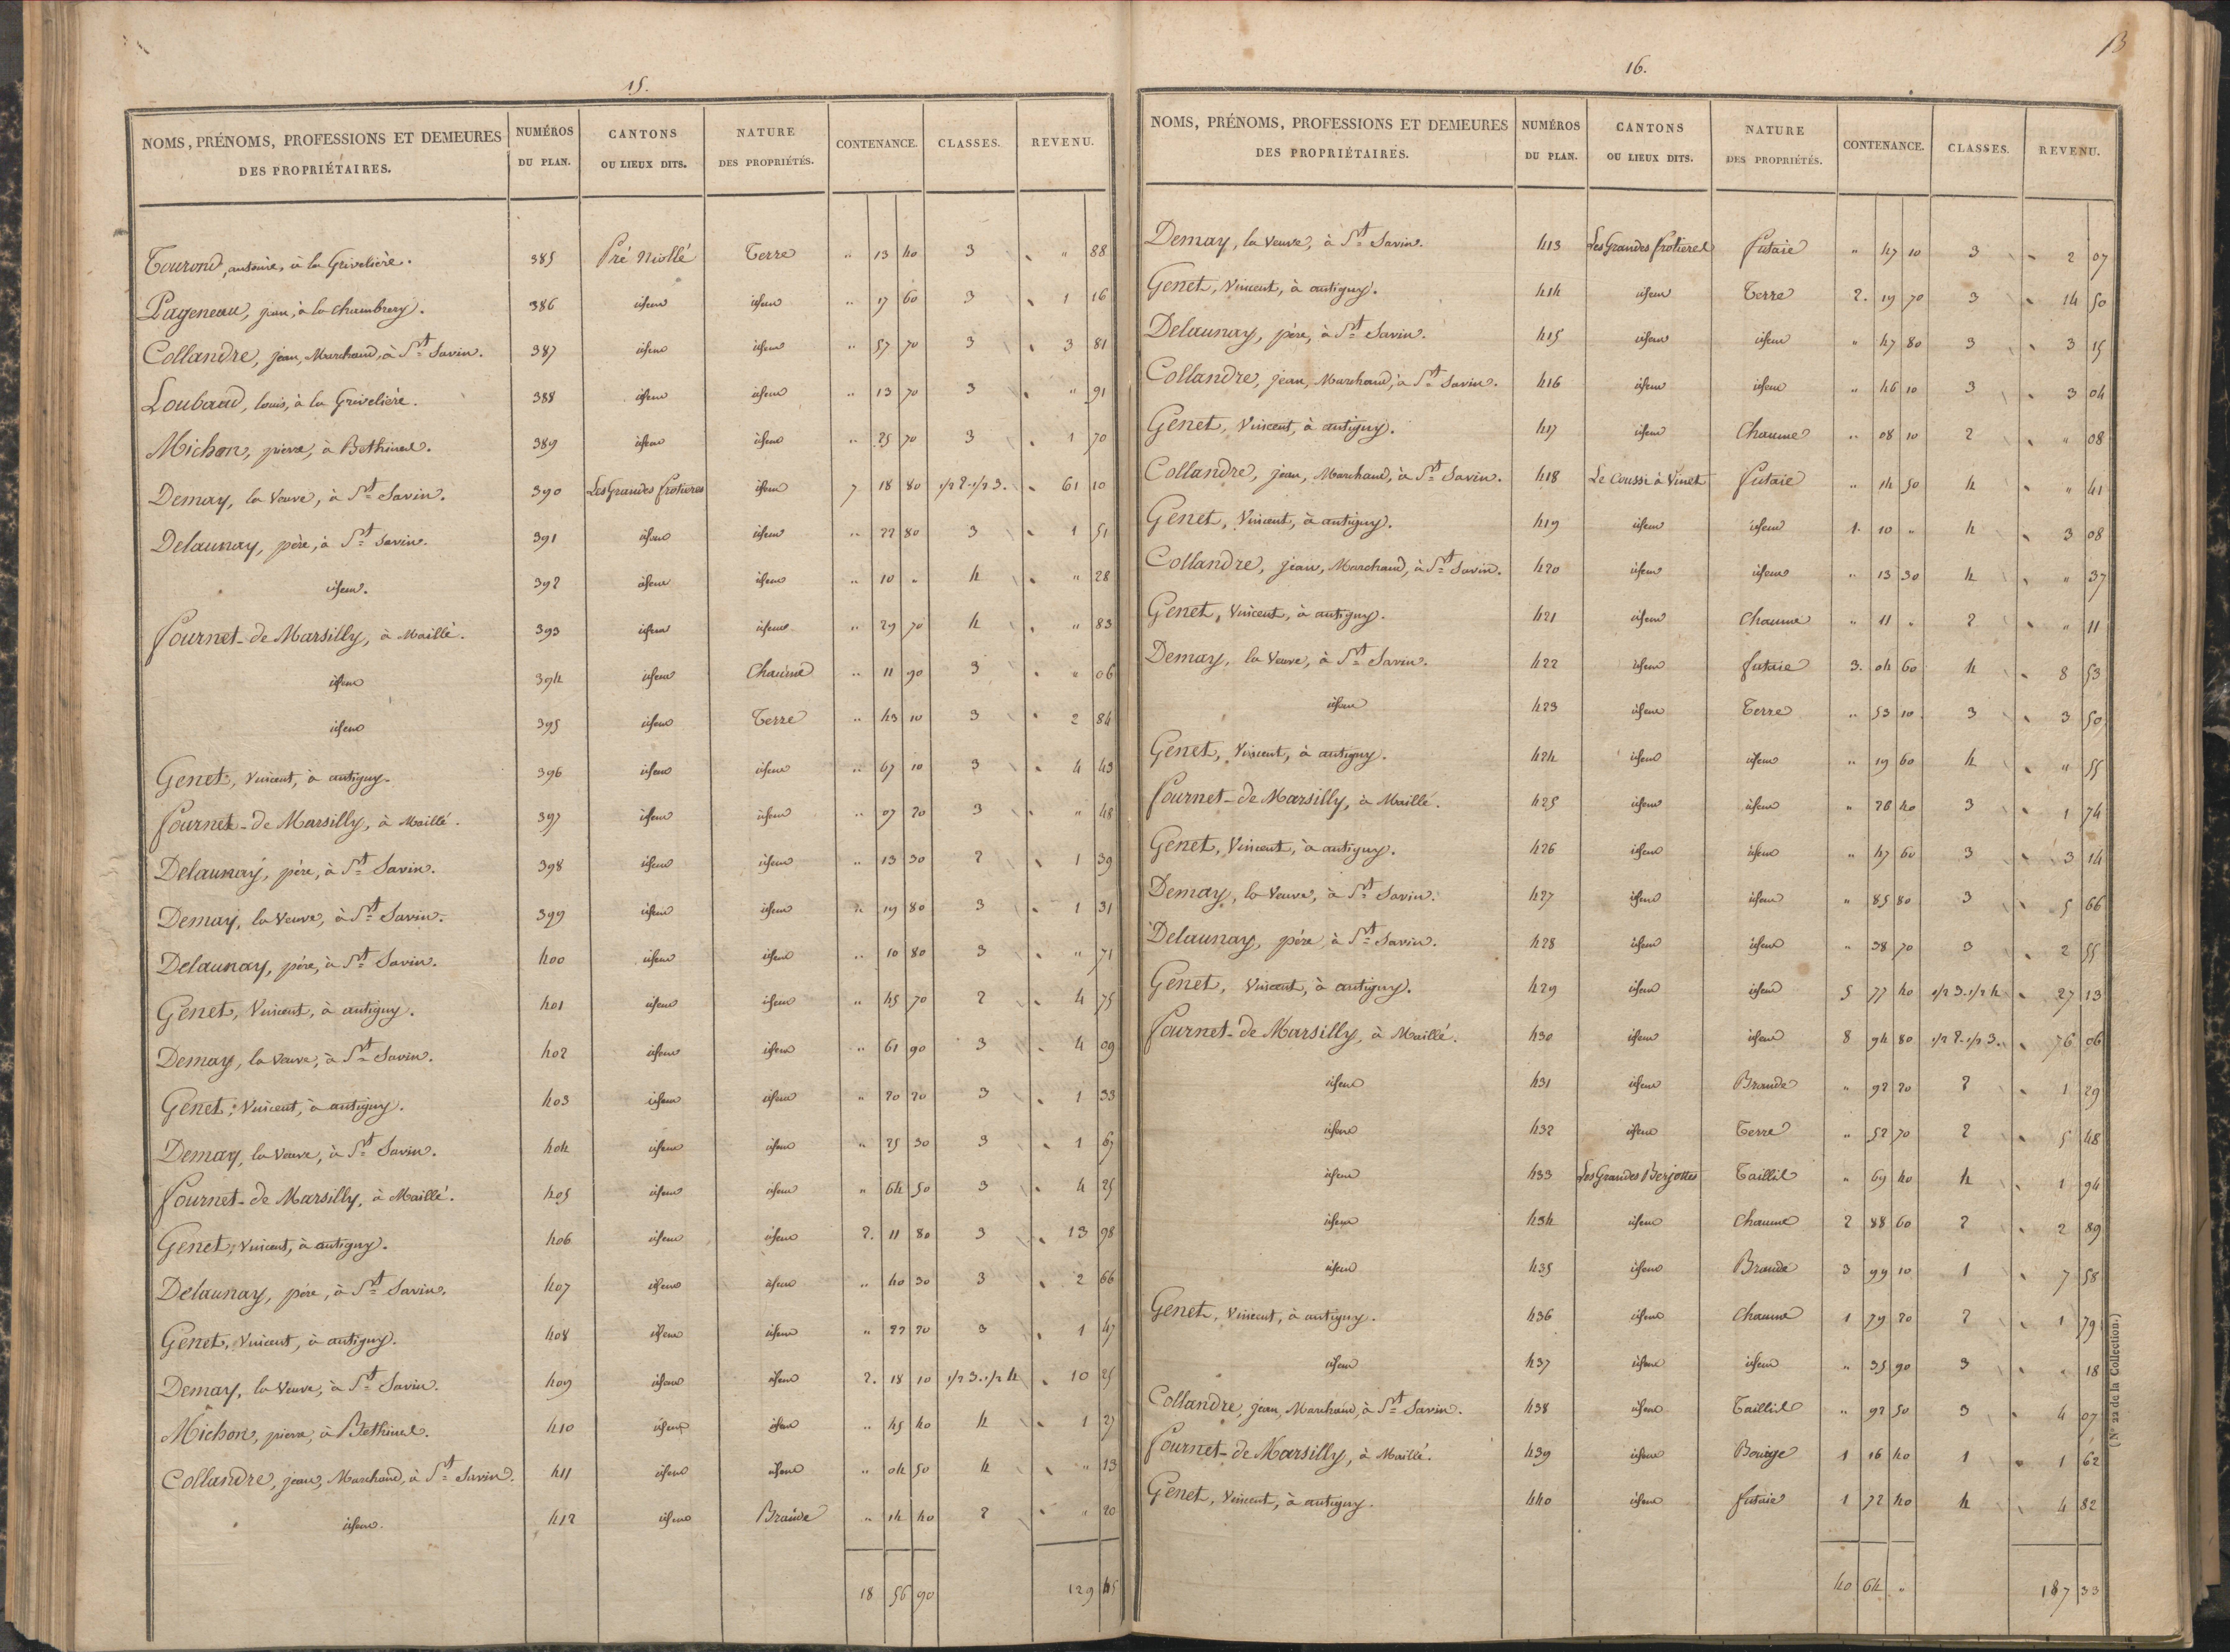 15.
NOMS, PRÉNOMS, PROFESSIONS ET DEMEURES DES PROPRIÉTAIRES. NUMÉROS DU PLAN. CANTONS OU LIEUX DITS. NATURE DES PROPRIÉTÉS. CONTENANCE. CLASSES. REVENU.
Tourond, antoine, à la Grivelière. 385 Pré Niollé Terre " 13 40 3 " 88
Pageneau, jean, à la Chambrery. 386 idem idem " 17 60 3 1 16
Collandre, jean, Marchand, à St Savin. 387 idem idem " 57 70 3 3 81
Loubaud, louis, à la Grivelière. 388 idem idem " 13 70 3 " 91
Michon, pierre, à Bethines. 389 idem idem " 25 70 3 1 70
Demay, la Veuve, à St Savin. 390 Les Grandes frotieres idem 7 18 80 1/2 2-1/2 3. 61 10
Delaunay, père, à St Savin. 391 idem idem " 22 80 3 1 51
idem. 392 idem idem " 10 " 4 " 28
fournet-de Marsilly, à Maillé. 393 idem idem " 29 70 4 " 83
idem 394 idem Chaume " 11 90 3 " 06
idem 395 idem Terre " 43 10 3 2 84
Genet, Vincent, à antigny. 396 idem idem " 67 10 3 4 43
fournet-de Marsilly, à Maillé. 397 idem idem " 07 20 3 " 48
Delaunay, père, à St Savin. 398 idem idem " 13 30 2 1 39
Demay, la Veuve, à St Savin. 399 idem idem " 19 80 3 1 31
Delaunay, père, à St Savin. 400 idem idem " 10 80 3 " 71
Genet, Vincent, à antigny. 401 idem idem " 45 70 2 4 75
Demay, la Veuve, à St Savin. 402 idem idem " 61 90 3 4 09
Genet, Vincent, à antigny. 403 idem idem " 20 20 3 1 33
Demay, la Veuve, à St Savin. 404 idem idem " 25 30 3 1 67
fournet-de Marsilly, à Maillé. 405 idem idem " 64 50 3 4 25
Genet, Vincent, à antigny. 406 idem idem 2. 11 80 3 13 98
Delaunay, père, à St Savin. 407 idem idem " 40 30 3 2 66
Genet, Vincent, à antigny. 408 idem idem " 22 20 3 1 47
Demay, la Veuve, à St Savin. 409 idem idem 2. 18 10 1/2 3.1/2 4 10 25
Michon, pierre, à Bethines. 410 idem idem " 45 40 4 1 27
Collandre, jean, Marchand, à St Savin. 411 idem idem " 04 50 4 " 13
idem. 412 idem Brande " 14 40 2 " 20
18 56 90 129 45
13
16.
NOMS, PRÉNOMS, PROFESSIONS ET DEMEURES DES PROPRIÉTAIRES. NUMÉROS DU PLAN. CANTONS OU LIEUX DITS. NATURE DES PROPRIÉTÉS. CONTENANCE. CLASSES. REVENU.
Demay, la Veuve, à St Savin. 413 Les Grandes frotieres futaie " 47 10 3 2 07
Genet, Vincent, à antigny. 414 idem Terre 2. 19 70 3 14 50
Delaunay, père, à St Savin. 415 idem idem " 47 80 3 3 15
Collandre, jean, Marchand, à St Savin. 416 idem idem " 46 10 3 3 04
Genet, Vincent, à antigny. 417 idem Chaume " 08 10 2 " 08
Collandre, jean, Marchand, à St Savin. 418 Le Coussi à Vinet futaie " 14 50 4 " 41
Genet, Vincent, à antigny. 419 idem idem 1. 10 " 4 3 08
Collandre, jean, Marchand, à St Savin. 420 idem idem " 13 30 4 " 37
Genet, Vincent, à antigny. 421 idem Chaume " 11 " 2 " 11
Demay, la Veuve, à St Savin. 422 idem futaie 3. 04 60 4 8 53
idem 423 idem Terre " 53 10 3 3 50
Genet, Vincent, à antigny. 424 idem idem " 19 60 4 " 55
fournet-de Marsilly, à Maillé. 425 idem idem " 26 40 3 1 74
Genet, Vincent, à antigny. 426 idem idem " 47 60 3 3 14
Demay, la Veuve, à St Savin. 427 idem idem " 85 80 3 5 66
Delaunay, père, à St Savin. 428 idem idem " 38 70 3 2 55
Genet, Vincent, à antigny. 429 idem idem 5 77 40 1/2 3.1/2 4 27 13
fournet-de Marsilly, à Maillé. 430 idem idem 8 94 80 1/2 2-1/2 3. 76 06
idem 431 idem Brande " 92 20 2 1 29
idem 432 idem Terre " 52 70 2 5 48
idem 433 Les Grandes Berjottes Taillis " 69 40 4 1 94
idem 434 idem Chaume 2 88 60 2 2 89
idem 435 idem Brande 3 99 10 1 7 58
Genet, Vincent, à antigny. 436 idem Chaume 1 79 20 2 1 79
idem 437 idem idem " 35 90 3 " 18
Collandre, jean, Marchand, à St Savin. 438 idem Taillis " 92 50 3 4 07
fournet-de Marsilly, à Maillé. 439 idem 1 16 40 1 1 62
Genet, Vincent, à antigny. 440 idem futaie 1 72 40 4 4 82
40 64 " 187 33
(N° 22 de la Collection.)